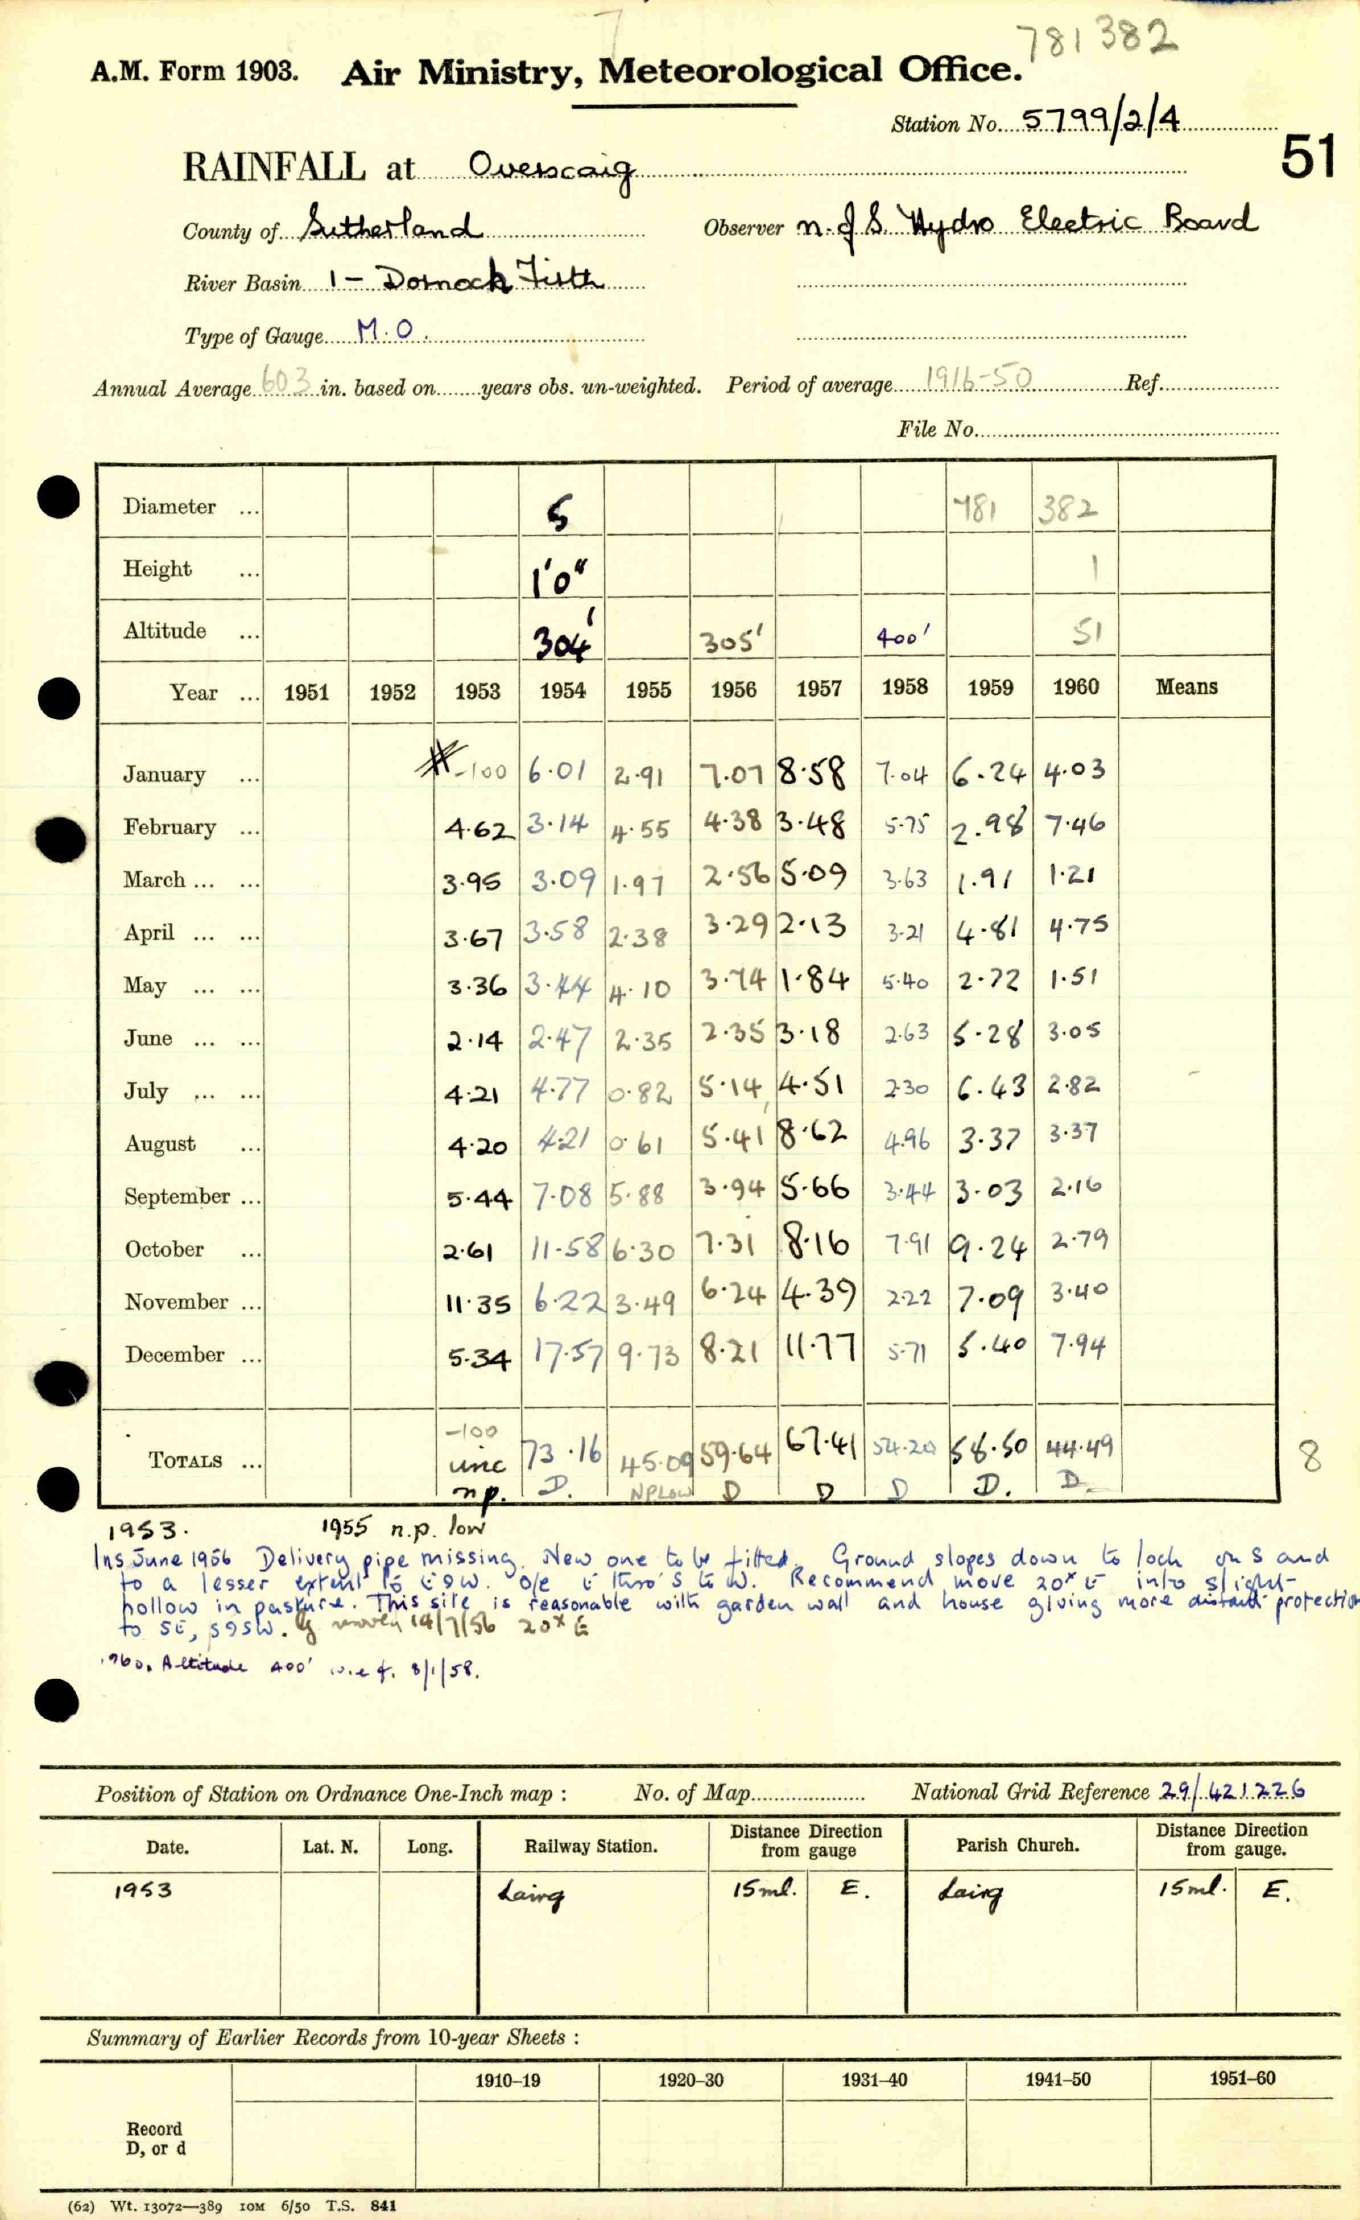 7
781382
A.M. Form 1903. Air Ministry, Meteorological Office.
Station No. 5799/2/4
51
RAINFALL at Overscaig
County of Sutherland Observer N. of S. Hydro Electric Board
River Basin 1 - Dornoch Firth
Type of Gauge M.O.
Annual Average 603 in. based on years obs. un-weighted. Period of average 1916-50 Ref.
File No.
Diameter ... 5 781 382
Height ... 1'0" 1
Altitude ... 304' 305' 400' 51
Year ... 1951 1952 1953 1954 1955 1956 1957 1958 1959 1960 Means
January ... -100 6.01 2.91 7.07 8.58 7.04 6.24 4.03
February ... 4.62 3.14 4.55 4.38 3.48 5.75 2.98 7.46
March ... ... 3.95 3.09 1.97 2.56 5.09 3.63 1.91 1.21
April ... ... 3.67 3.58 2.38 3.29 2.13 3.21 4.81 4.75
May ... ... 3.36 3.44 4.10 3.74 1.84 5.40 2.72 1.51
June ... ... 2.14 2.47 2.35 2.35 3.18 2.63 5.28 3.05
July ... ... 4.21 4.77 0.82 5.14 4.51 2.30 6.43 2.82
August ... 4.20 4.21 0.61 5.41 8.62 4.96 3.37 3.37
September ... 5.44 7.08 5.88 3.94 5.66 3.44 3.03 2.16
October ... 2.61 11.58 6.30 7.31 8.16 7.91 9.24 2.79
November ... 11.35 6.22 3.49 6.24 4.39 2.22 7.09 3.40
December ... 5.34 17.57 9.73 8.21 11.77 5.71 5.40 7.94
-100
TOTALS ... unc 73.16 45.09 59.64 67.41 54.20 58.50 44.49
n.p. D. NPLOW D D D D. D.
8
1953. 1955 n.p. low
Ins June 1956 Delivery pipe missing. New one to be fitted. Ground slopes down to loch on S and
to a lesser extent to E & W. o/e E thro' S to W. Recommend move 20x E into slight
hollow in pasture. This site is reasonable with garden wall and house giving more distant protection
to SE, S & SW. g moved 14/7/56 20x E
1960. Altitude 400' w.e.f. 8/1/58.
Position of Station on Ordnance One-Inch map : No. of Map National Grid Reference 29/421226
Date. Lat. N. Long. Railway Station. Distance from Direction gauge Parish Church. Distance from Direction gauge.
1953 Lairg 15ml. E. Lairg 15ml. E.
Summary of Earlier Records from 10-year Sheets :
1910–19 1920–30 1931–40 1941–50 1951–60
Record
D, or d
(62) Wt. 13072—389 10M 6/50 T.S. 841